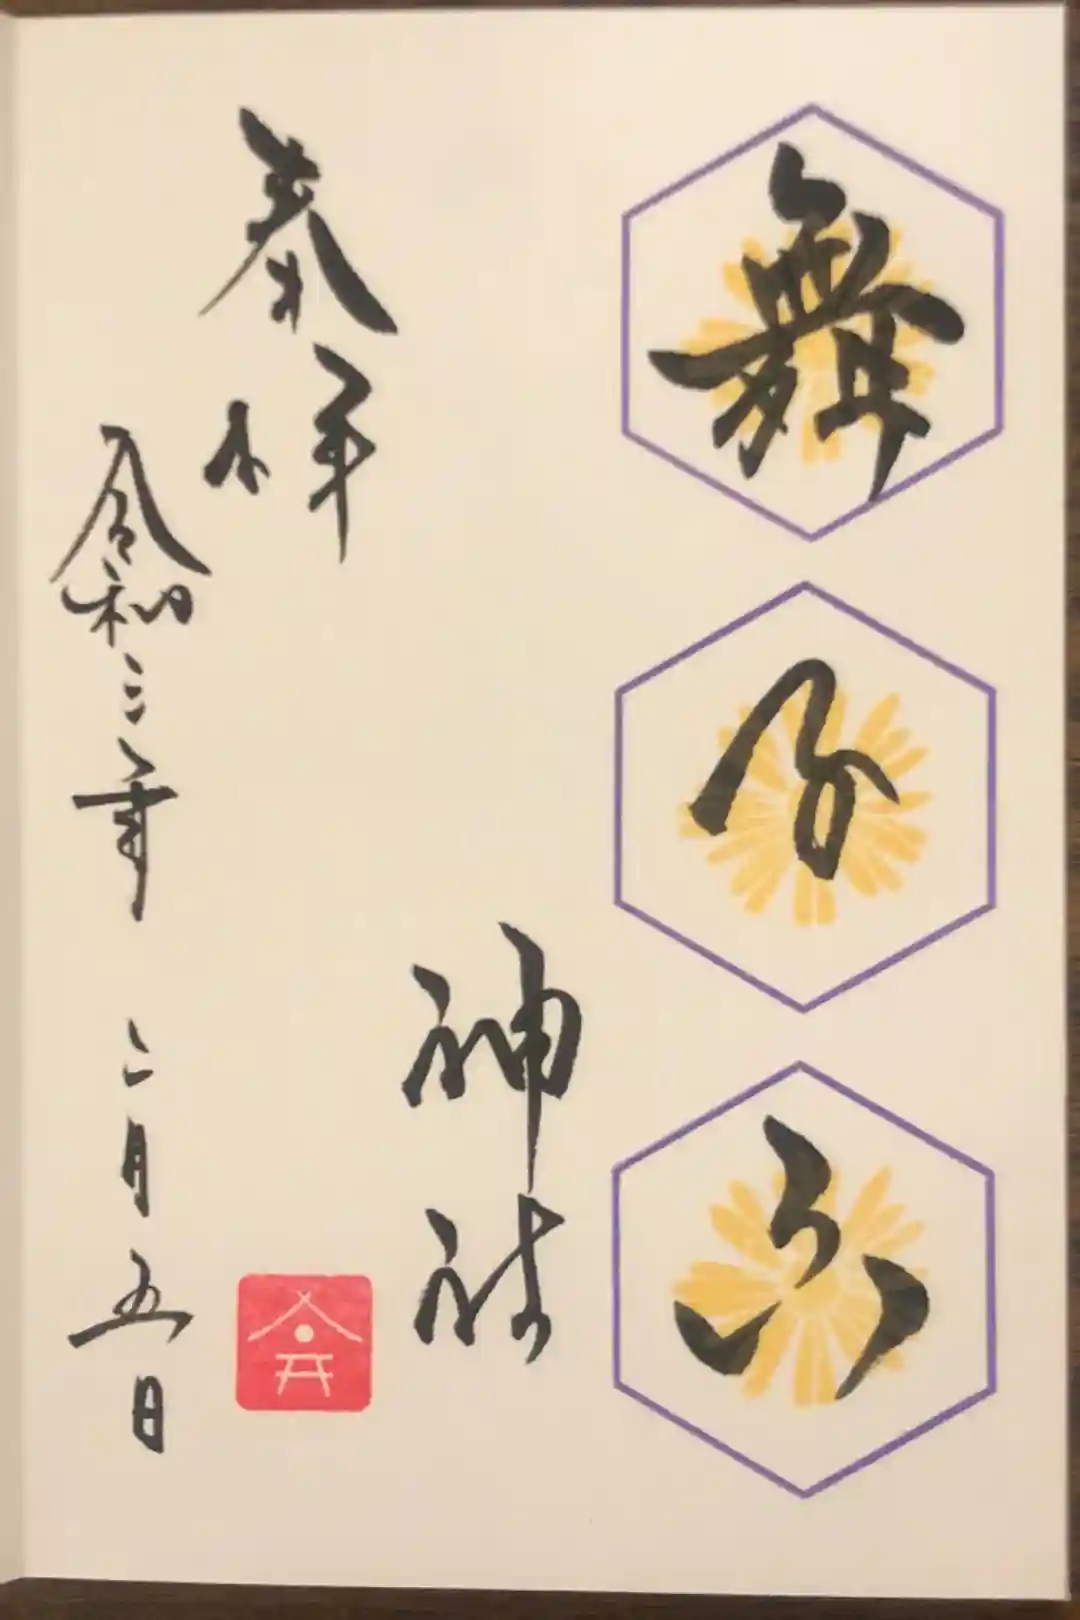 舞分六
神社
奉拝
令和三年 二月五日